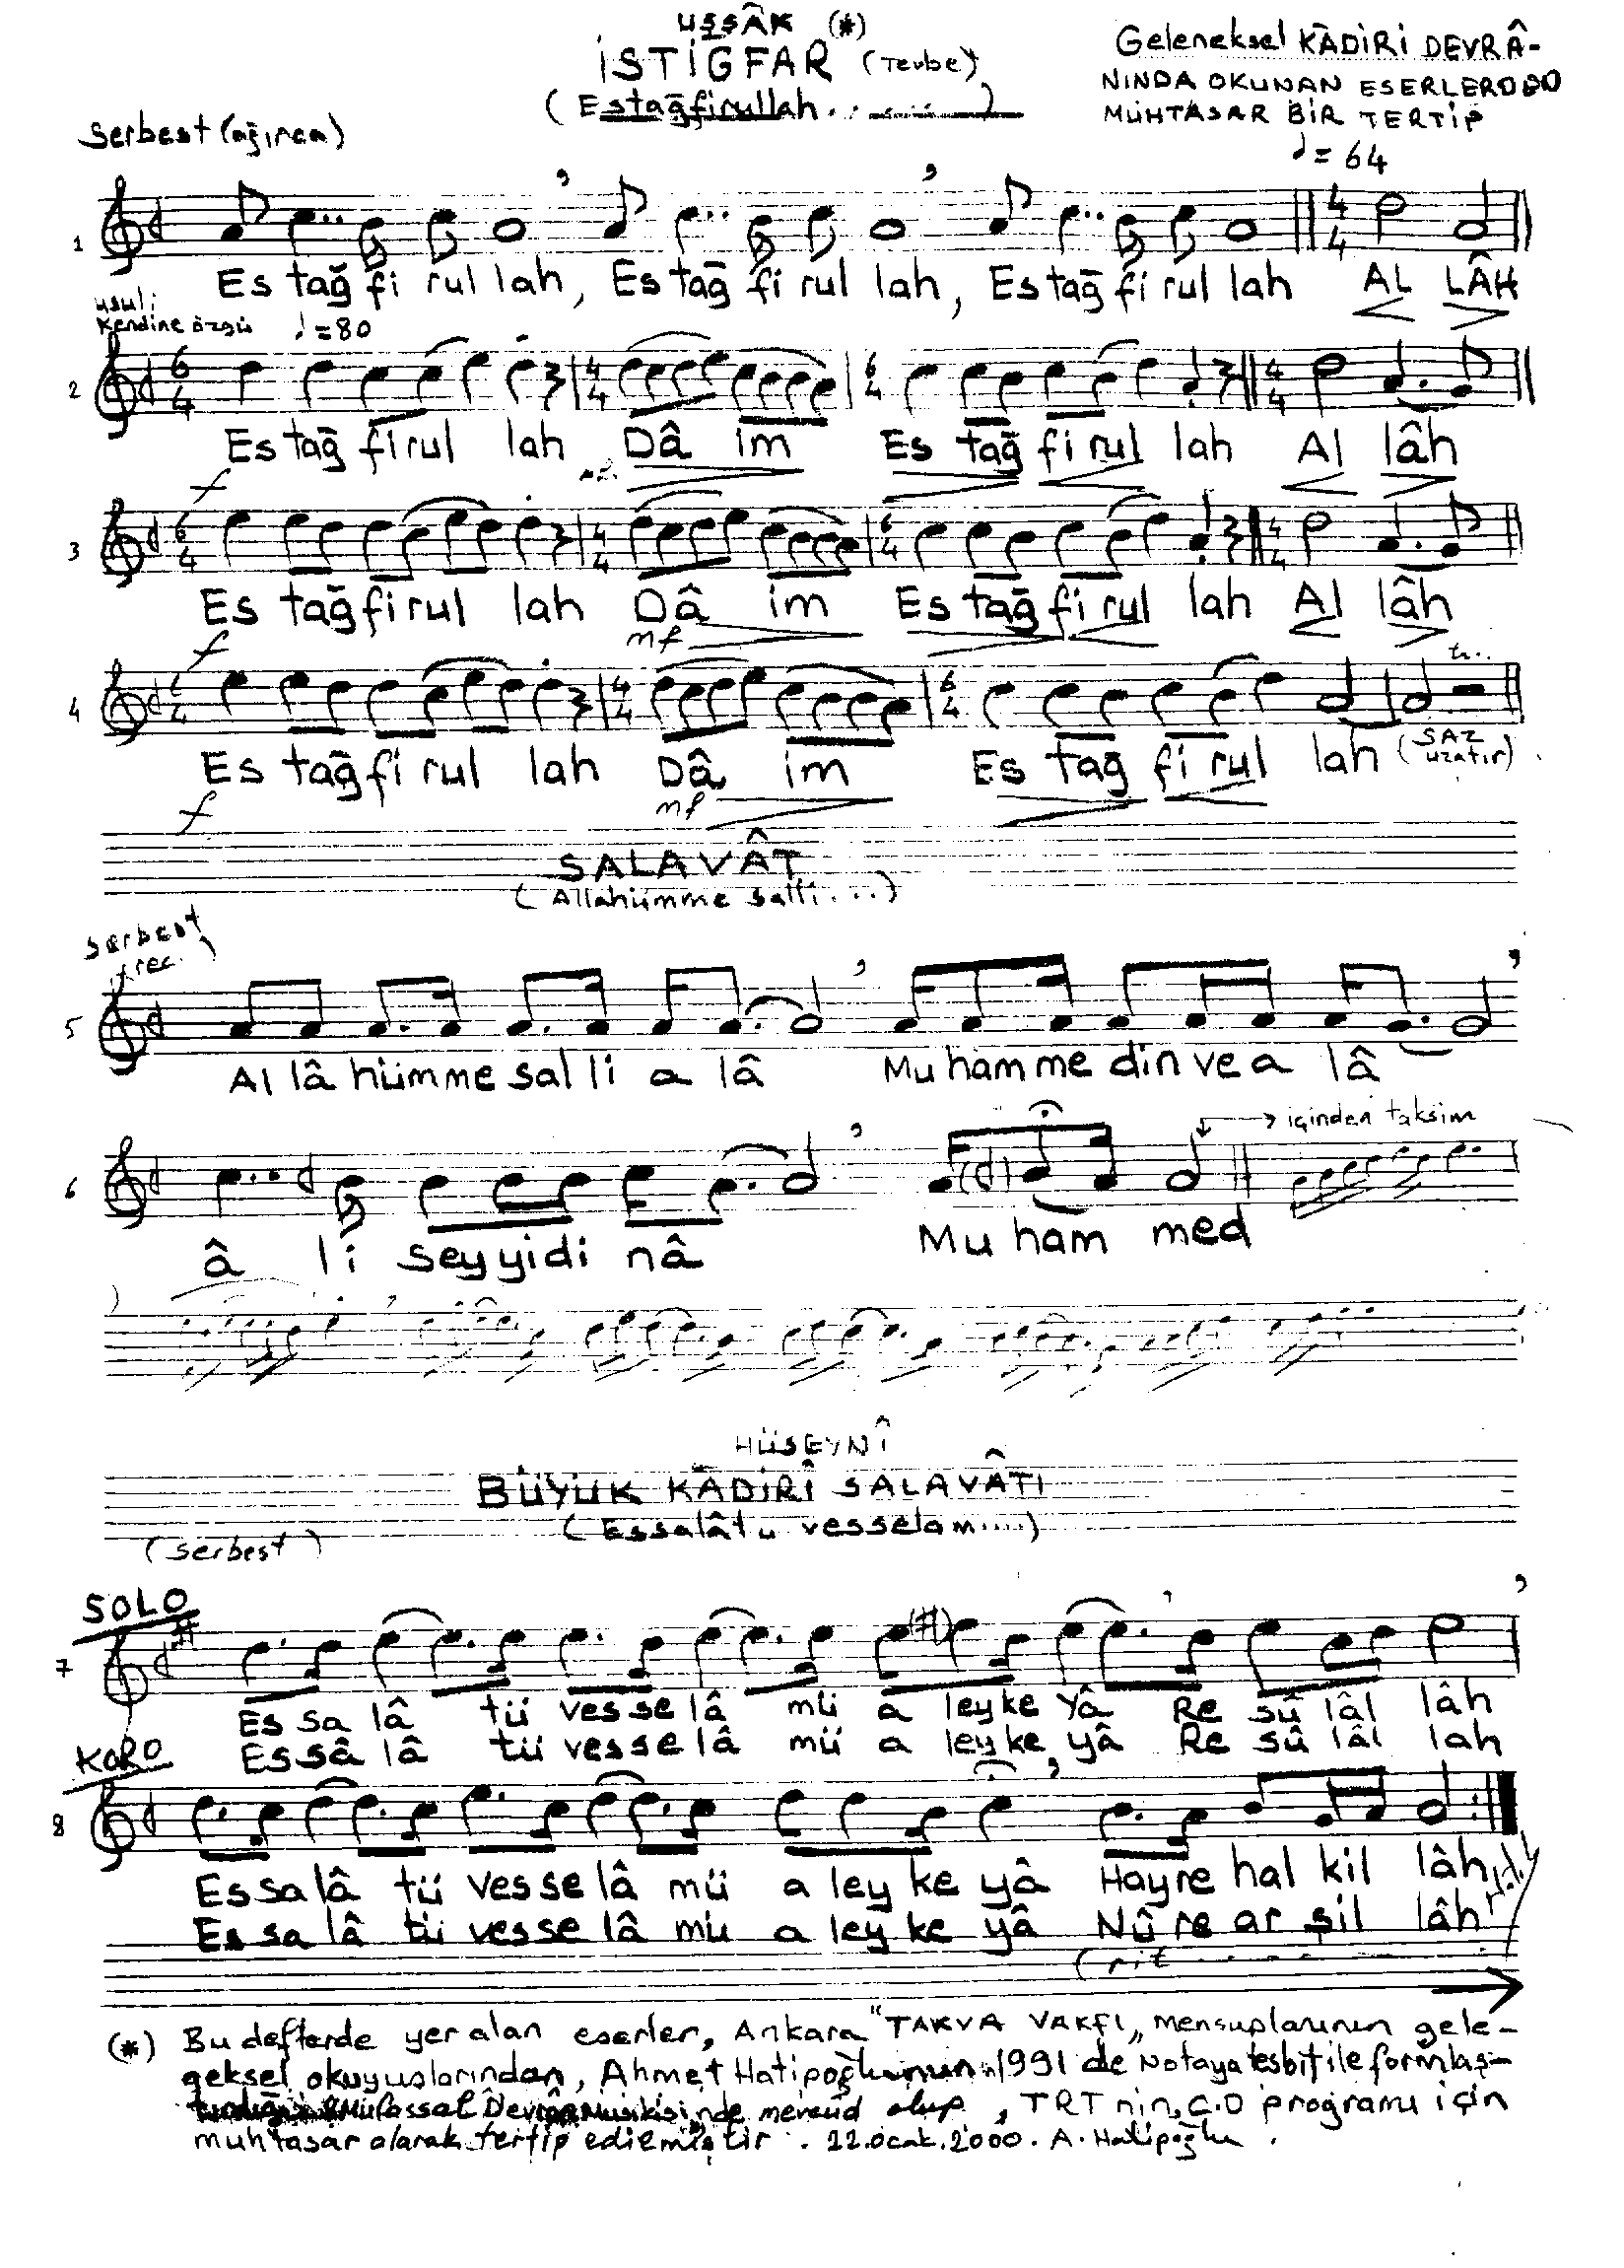 UŞŞÂK (*)
İSTİĞFAR (Tevbe)
(Estağfirullah...........)
Geleneksel KÂDİRİ DEVRÂ-
NINDA OKUNAN ESERLERDEN
MUHTASAR BİR TERTİP
Serbest (ağırca)
♩ = 64
1
4 4
Es tağ fi rul lah, Es tağ fi rul lah, Es tağ fi rul lah AL LÂH
usul:
kendine özgü ♩=80
2
6 4 4 4 6 4 4 4
Es tağ fi rul lah Dâ im Es tağ fi rul lah Al lâh
f
3
6 4 4 4 6 4 4 4
Es tağ fi rul lah Dâ im Es tağ fi rul lah Al lâh
f mf
tr..
4
6 4 4 4 6 4
Es tağ fi rul lah Dâ im Es tağ fi rul lah (SAZ uzatır)
f mf
SALAVÂT
(Allahümme salli...)
Serbest
rec.
5
Al lâ hüm me sal li a lâ Mu ham me din ve a lâ
içinden taksim
6
â li sey yi di nâ Mu ham med
HÜSEYNÎ
BÜYÜK KÂDİRÎ SALAVÂTI
(Essalâtu vesselam....)
(serbest)
SOLO
7
Es sa lâ tü ves se lâ mü a ley ke Yâ Re sû lâl lâh
Es sâ lâ tü ves se lâ mü a ley ke yâ Re sû lâl lah
KORO
8
Es sa lâ tü ves se lâ mü a ley ke yâ Hay re hal kil lâh
Es sa lâ tü ves se lâ mü a ley ke yâ Nû re ar şil lâh
(rit
(*) Bu defterde yer alan eserler, Ankara "TAKVA VAKFI" mensuplarının gele-
geksel okuyuşlarından, Ahmet Hatipoğlu'nun 1991 de Notaya tesbit ile formlaş-
tırdığı Mufassal Devrân Musikisinde mevcûd olup, TRT nin, C.D programı için
muhtasar olarak tertip edilmiştir. 22.ocak.2000. A. Hatipoğlu.